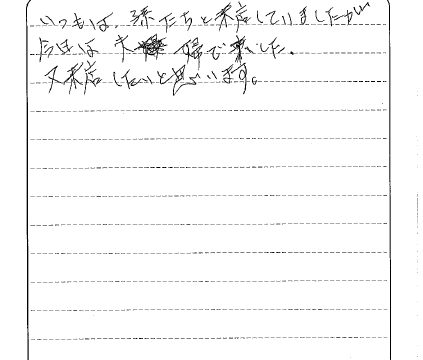 いつもは、孫たちと来店していましたが
今日は夫婦で来ました。
又来店したいと思います。